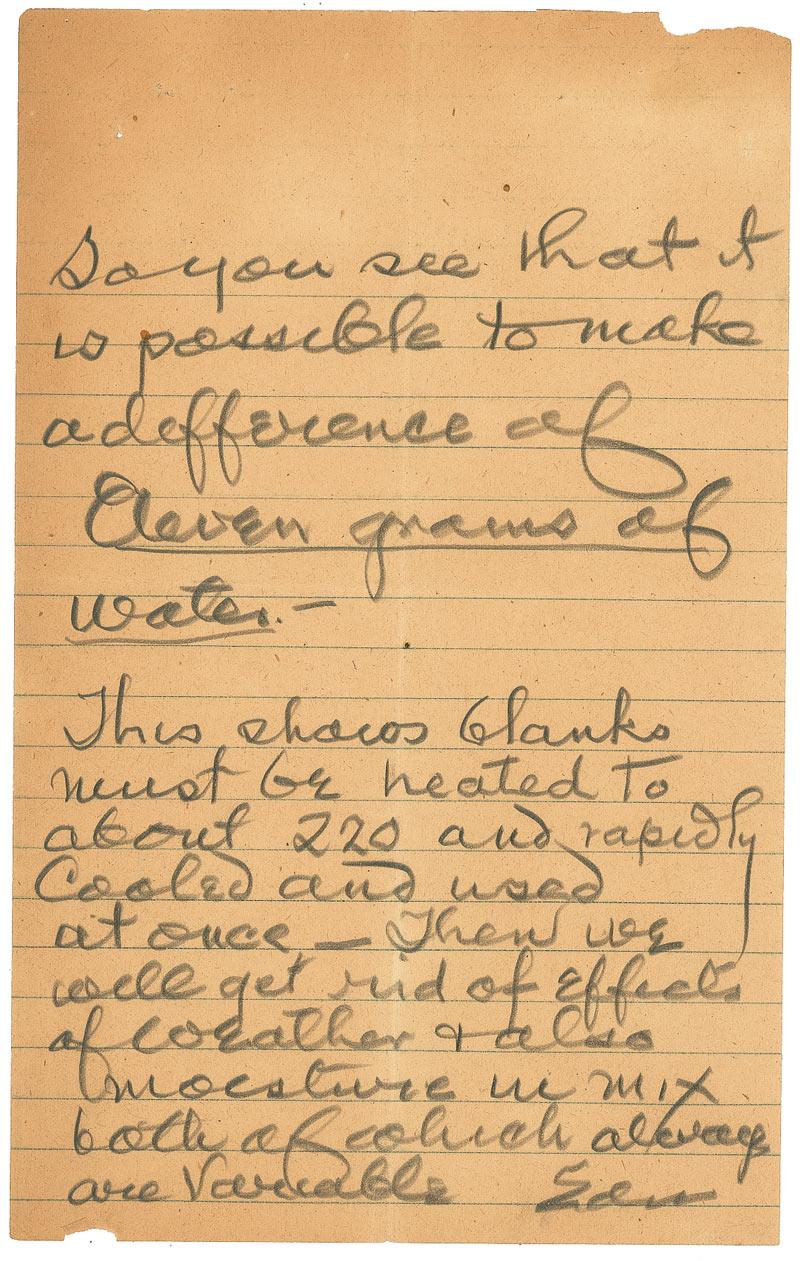 So you see that it
is possible to make
a difference of
Eleven grams of
water. —
This shows blanks
must be heated to
about 220 and rapidly
Cooled and used
at once — Then we
will get rid of effects
of weather & also
moisture in mix
both of which always
are Variable Edn